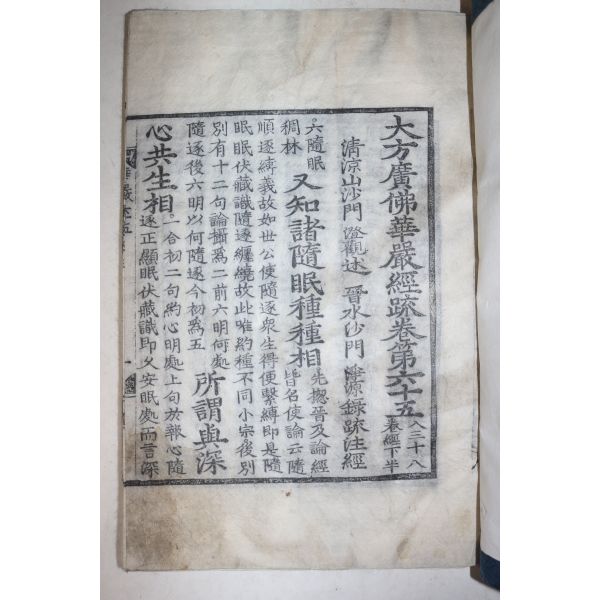 大方廣佛華嚴經疏卷第六十五 入三十八卷經下半
清涼山沙門 澄觀述 晉水沙門 淨源錄疏注經
六隨眠稠林 又知諸隨眠種種相 先摠晉及論經皆名使論云隨
順逐縛義故如世公使隨逐衆生得便繫縛即是隨
眠眠伏藏識隨逐纏繞故此唯約種不同小宗後別
別有十二句論攝爲二前六明何處
隨逐後六明以何隨逐今初爲五 所謂與深
心共生相 一合初二句約心明處上句於報心隨逐正顯眠伏藏識即久安眠處而言深